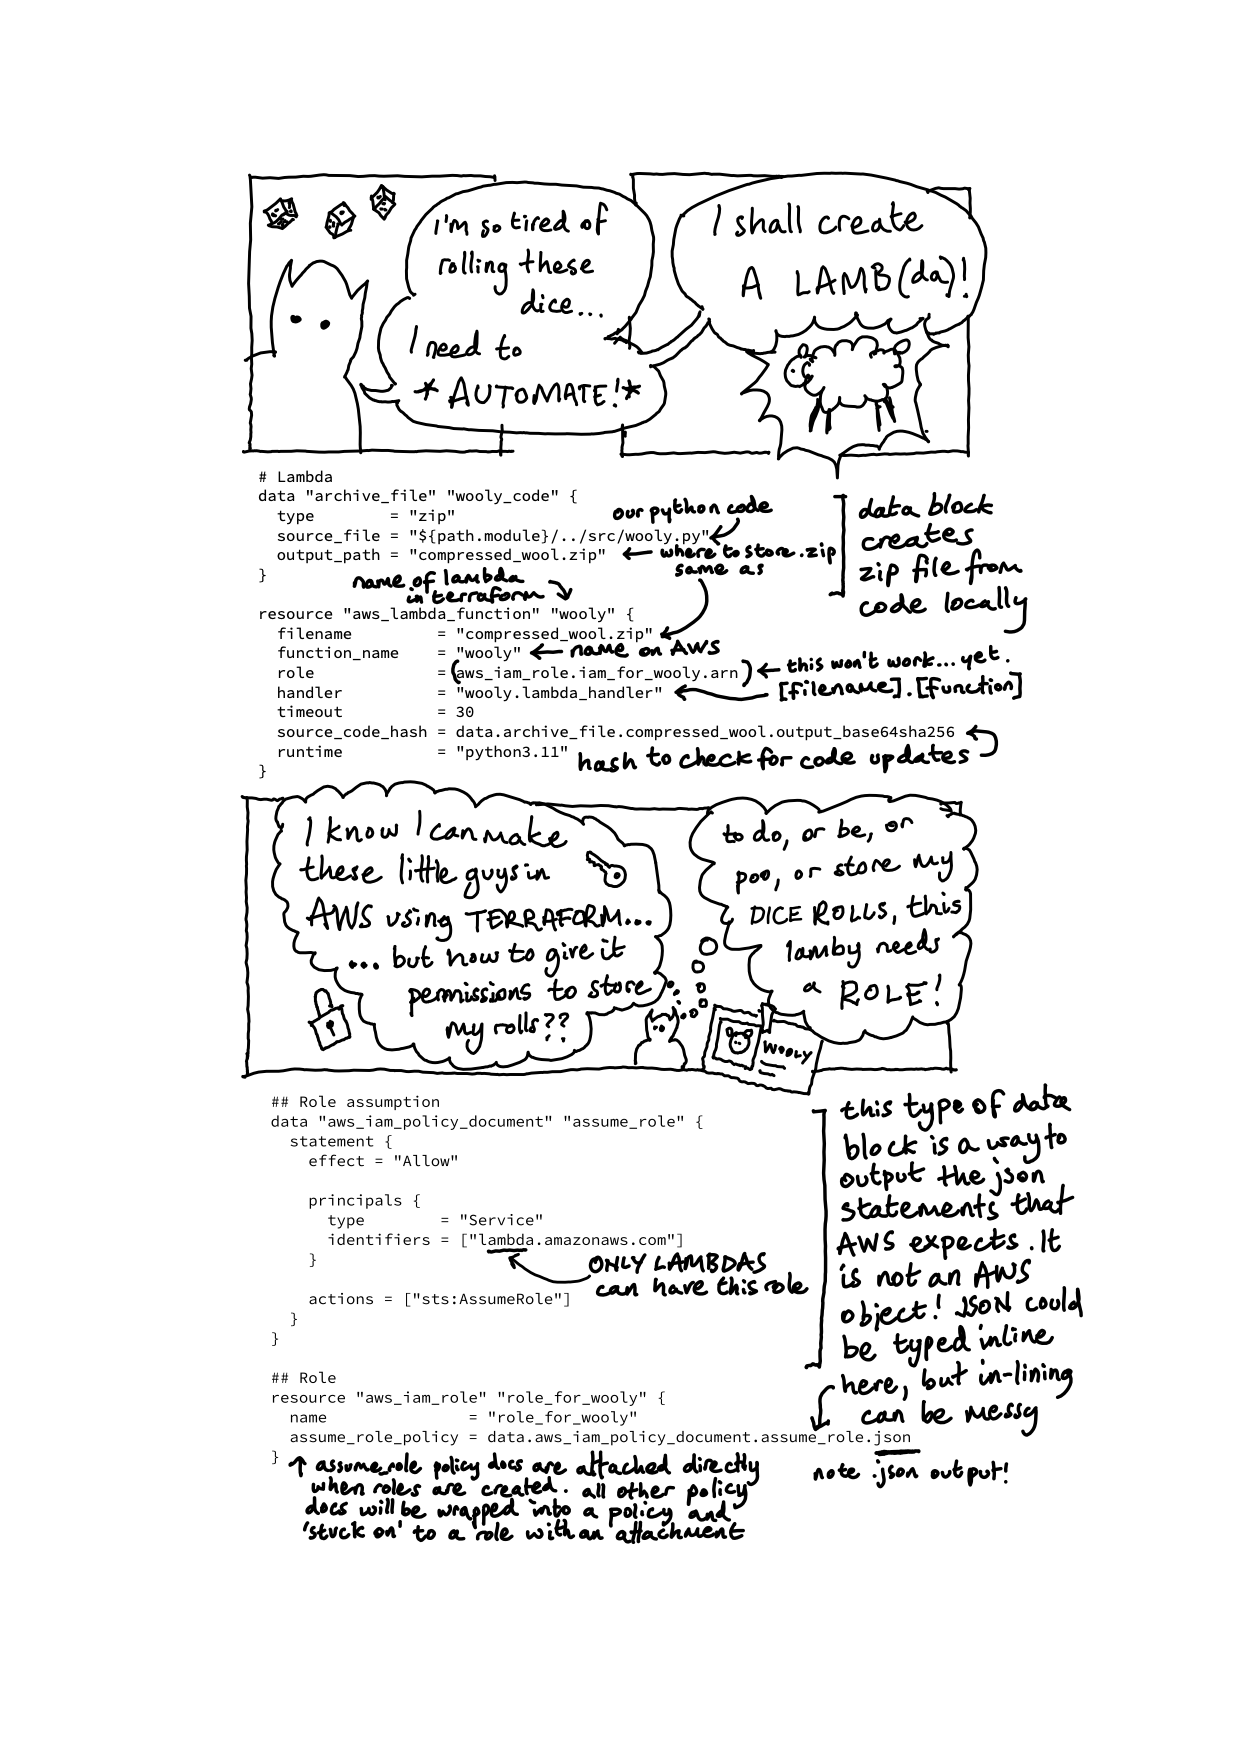 I'm so tired of
rolling these
dice...
I need to
*AUTOMATE!*
I shall create
A LAMB(da)!
# Lambda
data "archive_file" "wooly_code" {
  type        = "zip"
  source_file = "${path.module}/../src/wooly.py"
  output_path = "compressed_wool.zip"
}
our python code
where to store .zip
same as
data block
creates
zip file from
code locally
name of lambda
in terraform
resource "aws_lambda_function" "wooly" {
  filename         = "compressed_wool.zip"
  function_name    = "wooly"
  role             = (aws_iam_role.iam_for_wooly.arn)
  handler          = "wooly.lambda_handler"
  timeout          = 30
  source_code_hash = data.archive_file.compressed_wool.output_base64sha256
  runtime          = "python3.11"
}
name on AWS
this won't work... yet.
[filename].[function]
hash to check for code updates
I know I can make
these little guys in
AWS using TERRAFORM...
... but how to give it
permissions to store
my rolls??
to do, or be, or
poo, or store my
DICE ROLLS, this
lamby needs
a ROLE!
WOOLY
## Role assumption
data "aws_iam_policy_document" "assume_role" {
  statement {
    effect = "Allow"
    principals {
      type        = "Service"
      identifiers = ["lambda.amazonaws.com"]
    }
    actions = ["sts:AssumeRole"]
  }
}
ONLY LAMBDAS
can have this role
this type of data
block is a way to
output the json
statements that
AWS expects. It
is not an AWS
object! JSON could
be typed inline
here, but in-lining
can be messy
## Role
resource "aws_iam_role" "role_for_wooly" {
  name               = "role_for_wooly"
  assume_role_policy = data.aws_iam_policy_document.assume_role.json
}
note .json output!
assume_role policy docs are attached directly
when roles are created. all other policy
docs will be wrapped into a policy and
'stuck on' to a role with an attachment